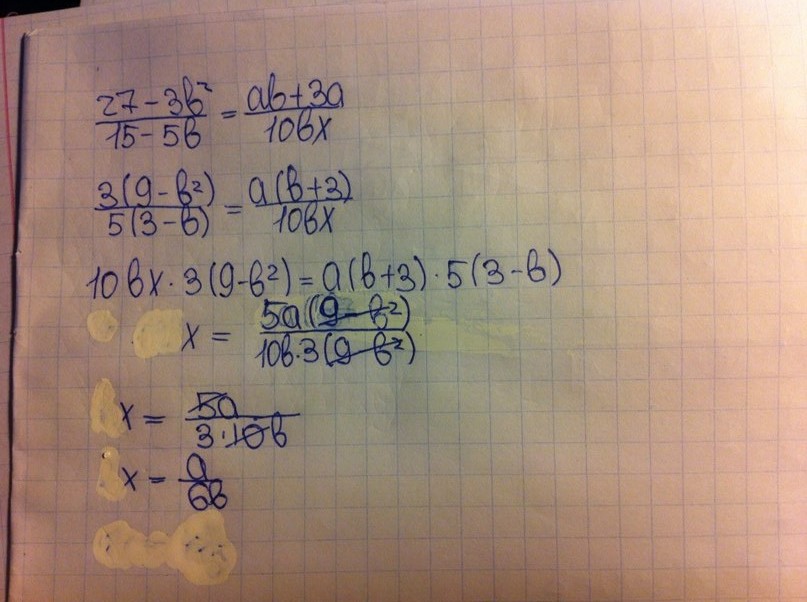 (27 - 3b²)/(15 - 5b) = (ab + 3a)/(10bx)
3(9 - b²)/5(3 - b) = a(b + 3)/(10bx)
10bx · 3(9 - b²) = a(b + 3) · 5(3 - b)
x = 5a(9 - b²)/10b · 3(9 - b²)
x = 5a/3 · 10b
x = a/6b